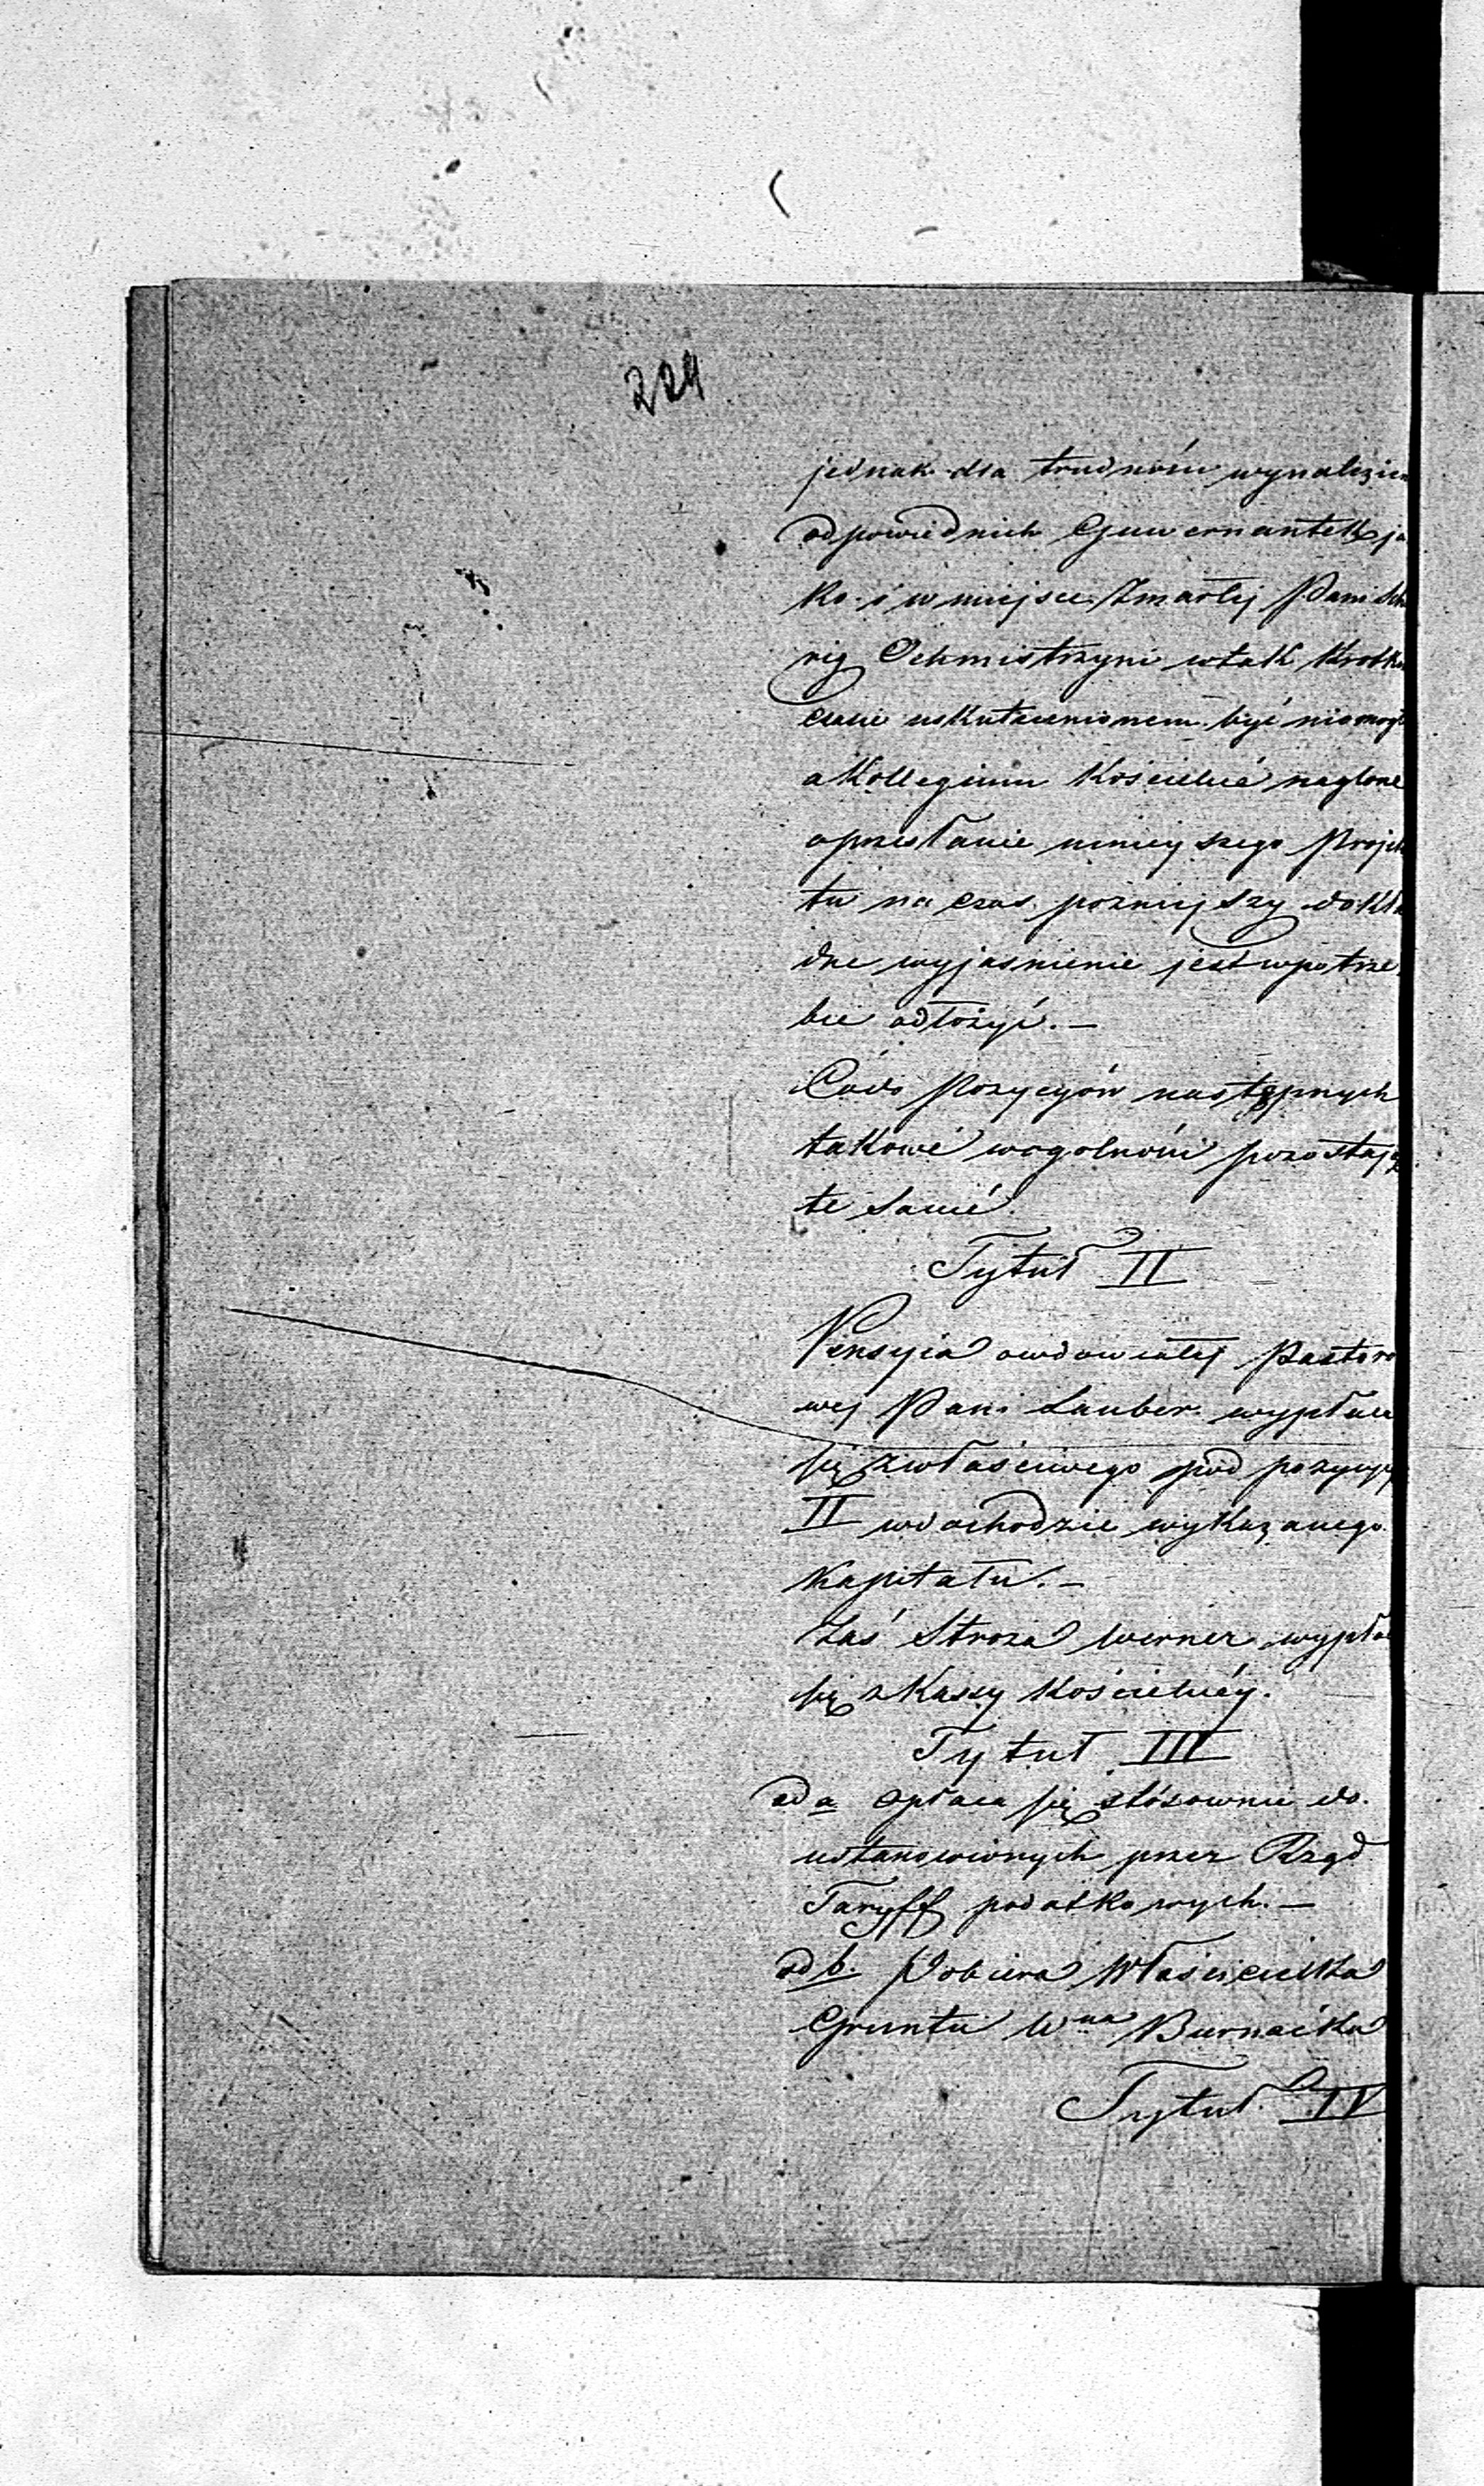 224
jednak dla trudności wynalezien
odpowiednich Guwernantek ja
ko i w miejsce Zmarłej Pani Sch
rig Ochmistrzyni wtak krotkim
czasie uskutecznionem być niemogł
a Kollegium Kościelné naglone
oprzesłanie niniejszego Projek
tu na czas pozniejszy dokła
dne wyjasnienie jest wpotrze
bie odłożyć. —
Codo Pozycyów następnych
takowé wogolności pozostają
te samé.
Tytuł II
Pensyia owdowiałej Pastoro
wej Pani Lauber wypłaca
się zwłaściwego pod pozycyą
II wdochodzie wykazanego
Kapitału. —
Zaś Stroza Werner wypłac
się z Kassy Kościelnéy.
Tytuł III
ad a Opłaca się stósownie do
ustanowionych przez Rząd
Taryff podatkowych. —
ad b. Pobiera Właścicielka
Gruntu Wna Burnacka
Tytuł IV